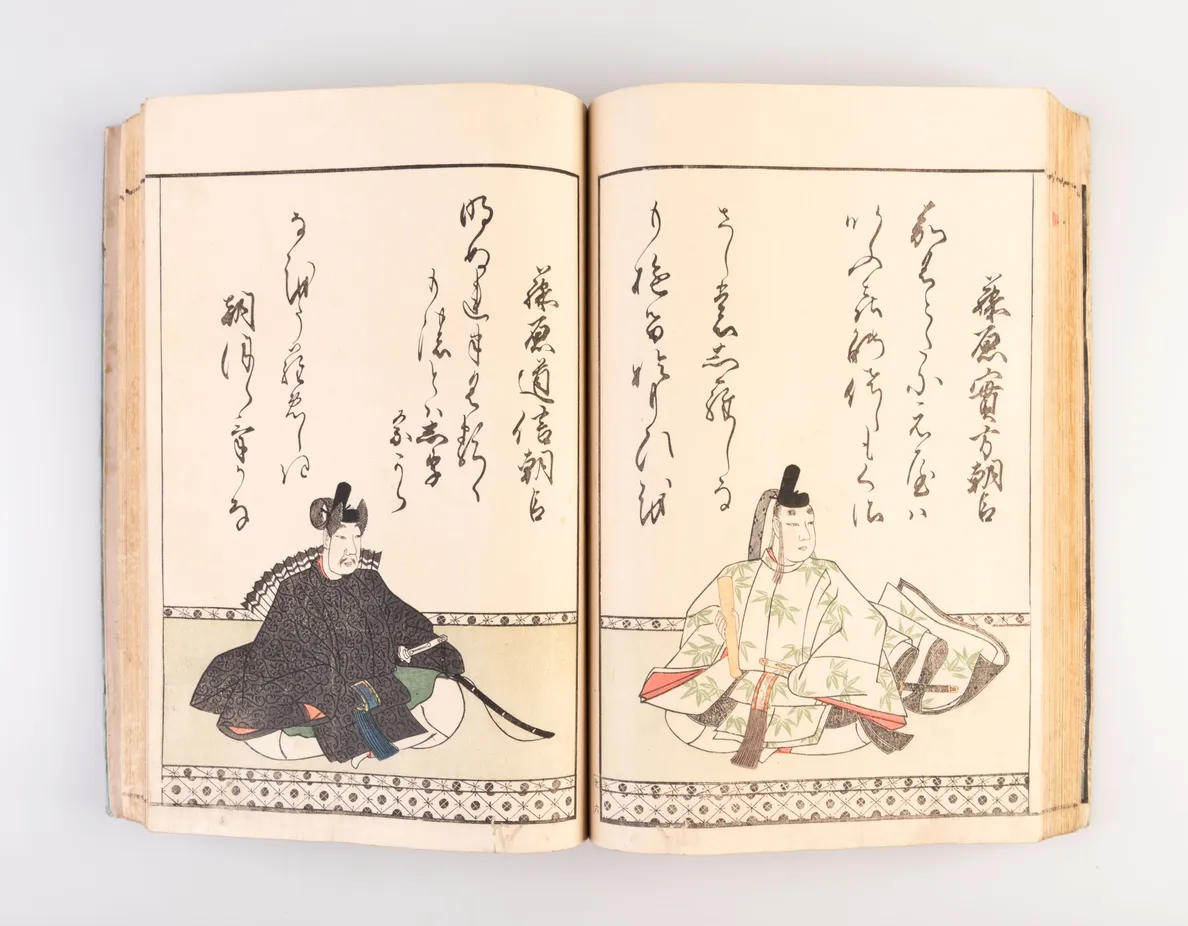 藤原實方朝臣
かくとたにえやは
いふきのさしもくさ
さしもしらしな
もゆるおもひを
藤原道信朝臣
明ぬれはくるゝ
ものとはしり
なから
なをうらめしき
朝ほらけかな